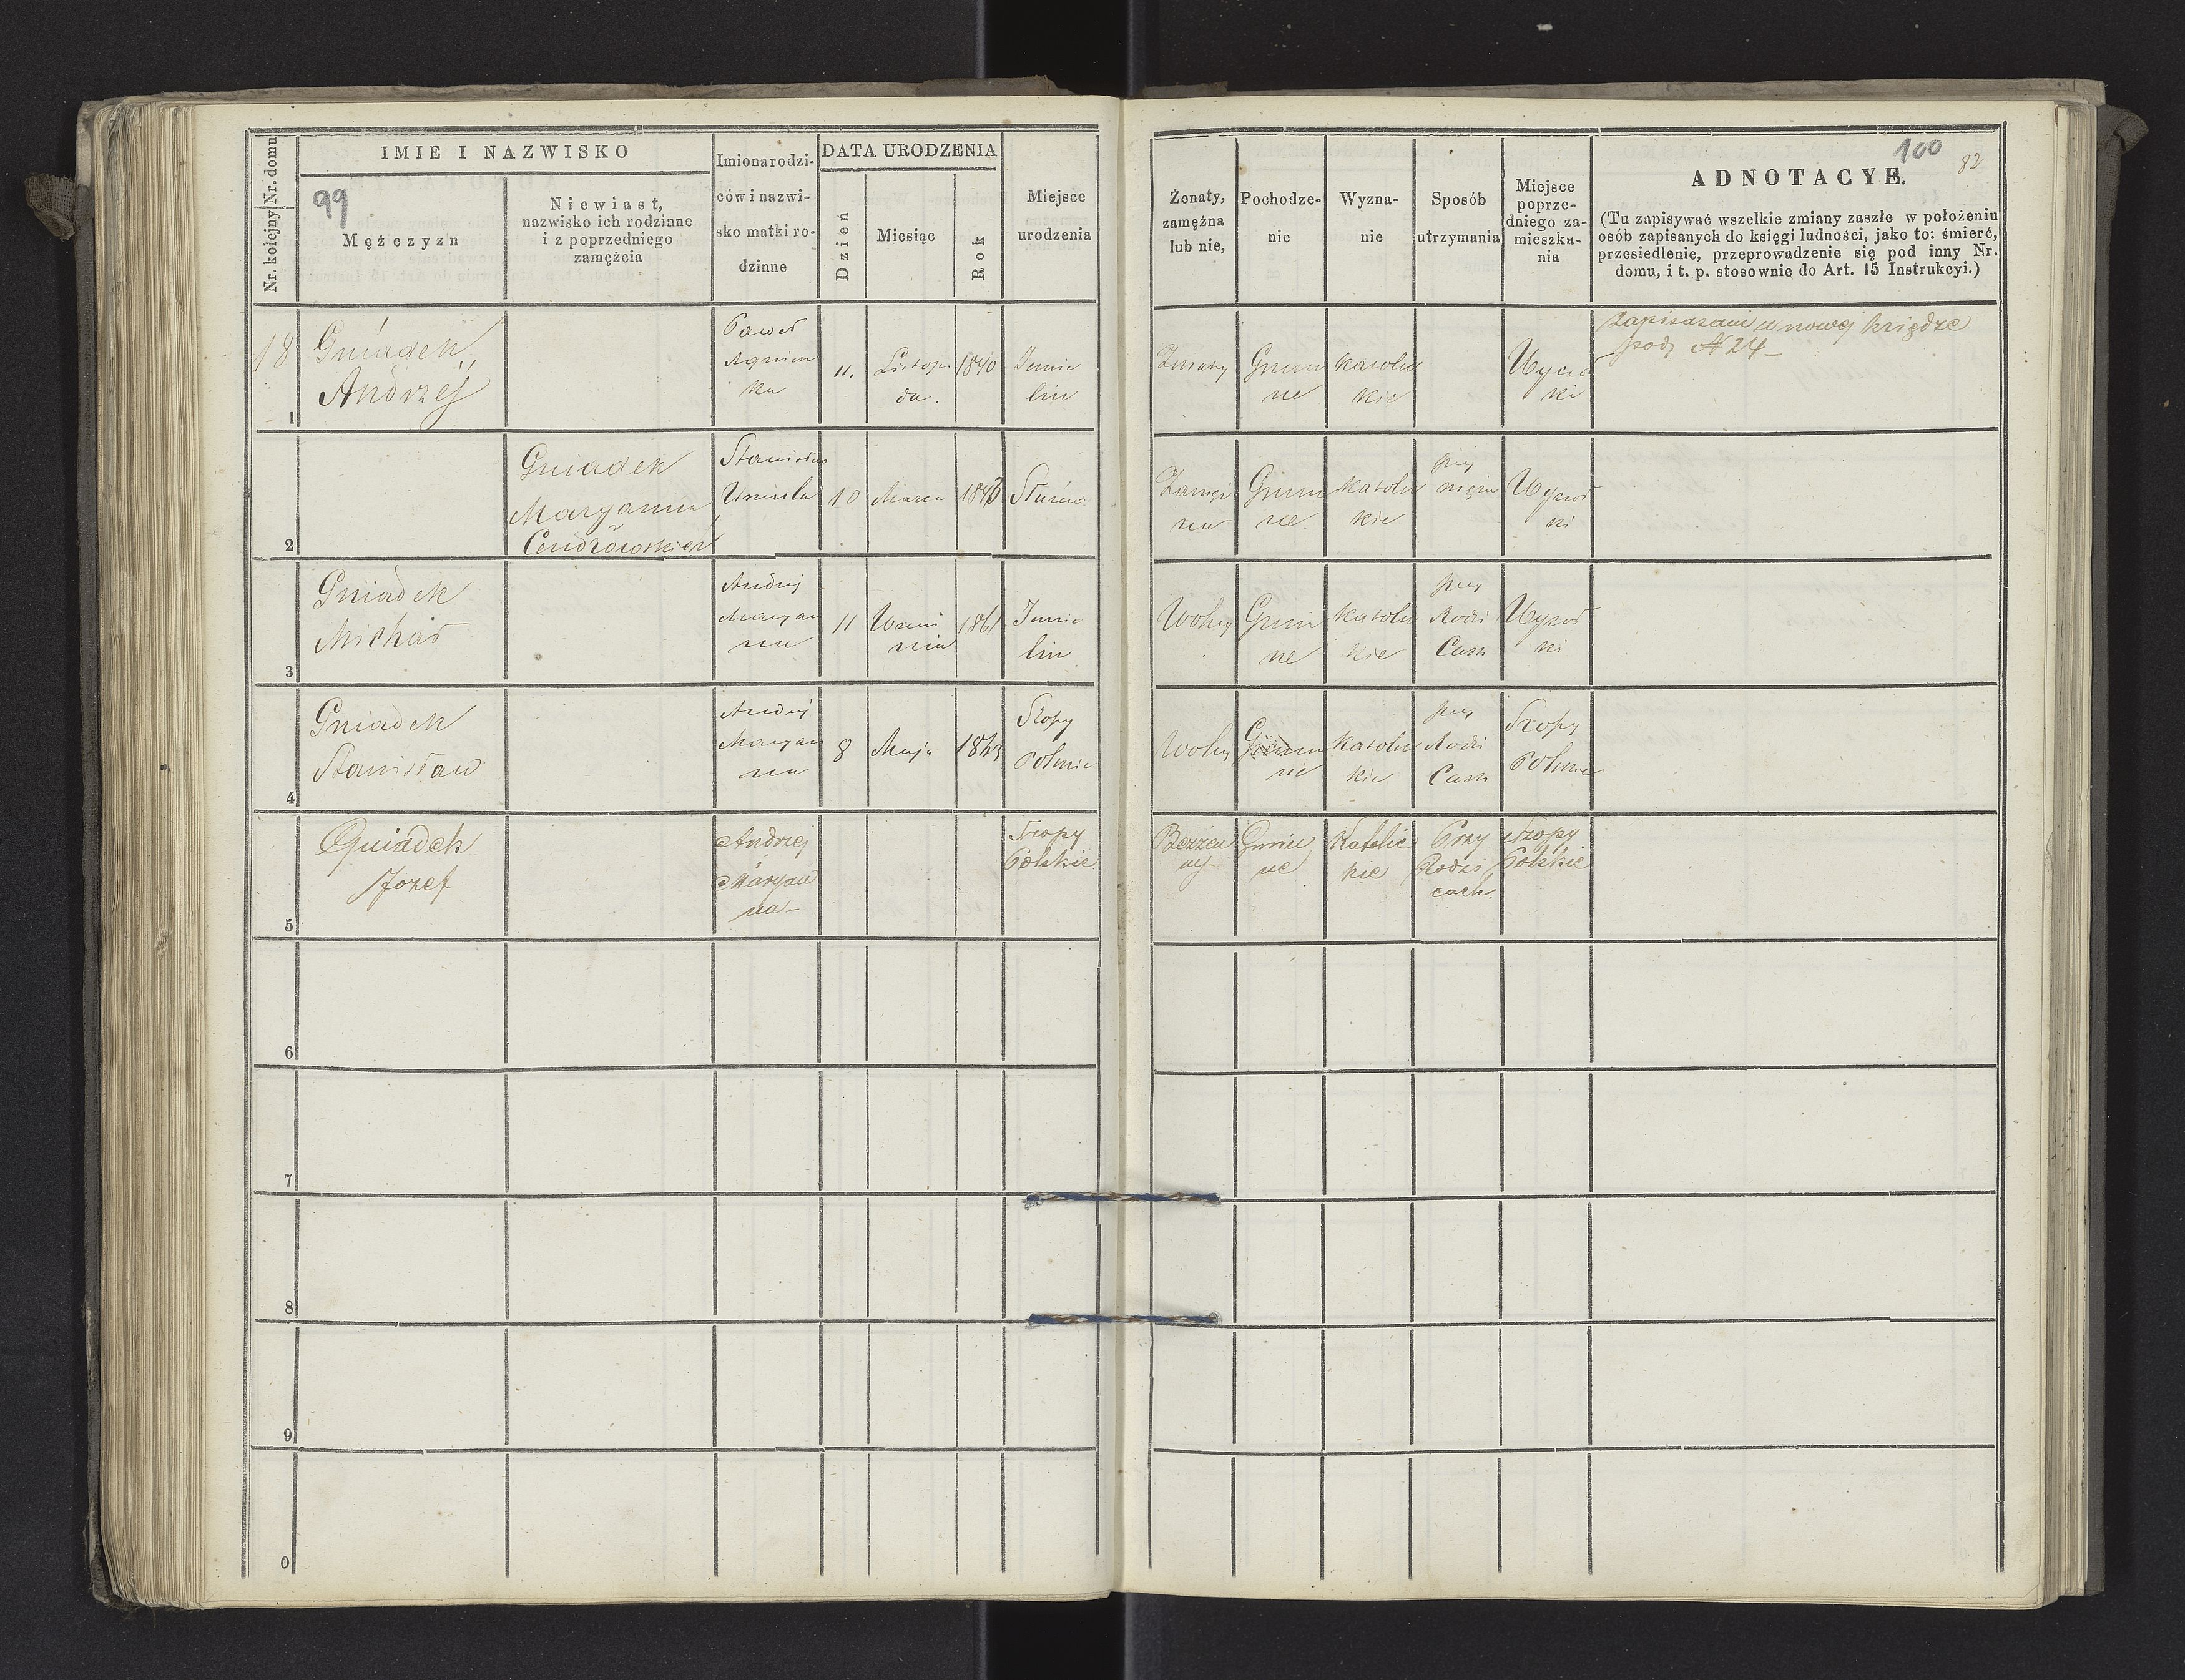 Nr. kolejny Nr. domu
IMIE I NAZWISKO
99
Mężczyzn
Niewiast,
nazwisko ich rodzinne
i z poprzedniego
zamężcia
Imiona rodzi-
ców i nazwi-
sko matki ro-
dzinne
DATA URODZENIA
Dzień
Miesiąc
Rok
Miejsce
urodzenia
Żonaty,
zamężna
lub nie,
Pochodze-
nie
Wyzna-
nie
Sposób
utrzymania
Miejsce
poprze-
dniego za-
mieszka-
nia
100
82
ADNOTACYE.
(Tu zapisywać wszelkie zmiany zaszłe w położeniu
osób zapisanych do księgi ludności, jako to: śmierć,
przesiedlenie, przeprowadzenie się pod inny Nr.
domu, i t. p. stosownie do Art. 15 Instrukcyi.)
18
1
Gniadek
Andrzej
Paweł
Agnisz
ka
11.
Listopa
da.
1840
Imie
lin
Żonaty
Gmin
ne
Katolic
kie
ki
Zapisani w nowej księdze
pod N 24
2
Gniadek
Maryanna
Cendrowskich
Stanisław
Urszula
10
Marca
Zamęż
na
Gmin
ne.
Katolic
kie
przy
mężu
ki
3
Gniadek
Michał
Andrzej
Maryan
na
11
Wrześ
nia
1861
Imie
lin
Wolny
Gmin
ne
Katolic
kie
przy
Rodzi
Cach
ki
4
Gniadek
Stanisław
Andrzej
Maryan
na
8
Maja
Stopy
Polskie
Wolny
Gmin
ne
Katolic
kie
przy
Rodzi
Cach
Stopy
Polskie
5
Gniadek
Jozef
Andrzej
i
Maryan
na
Stopy
Polskie
Bezżen
ny
Gmin
ne
Katolic
kie
Przy
Rodzi
cach.
Stopy
Polskie
6
7
8
9
0